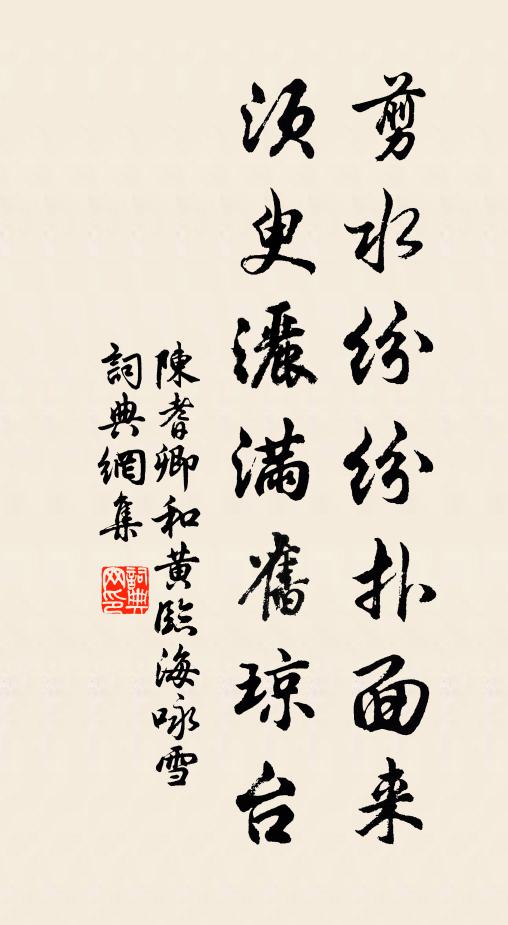 剪水纷纷扑面来
须叟灑满舊琼台
陳耆卿和黄臨海咏雪
詞典網集
詞典網印